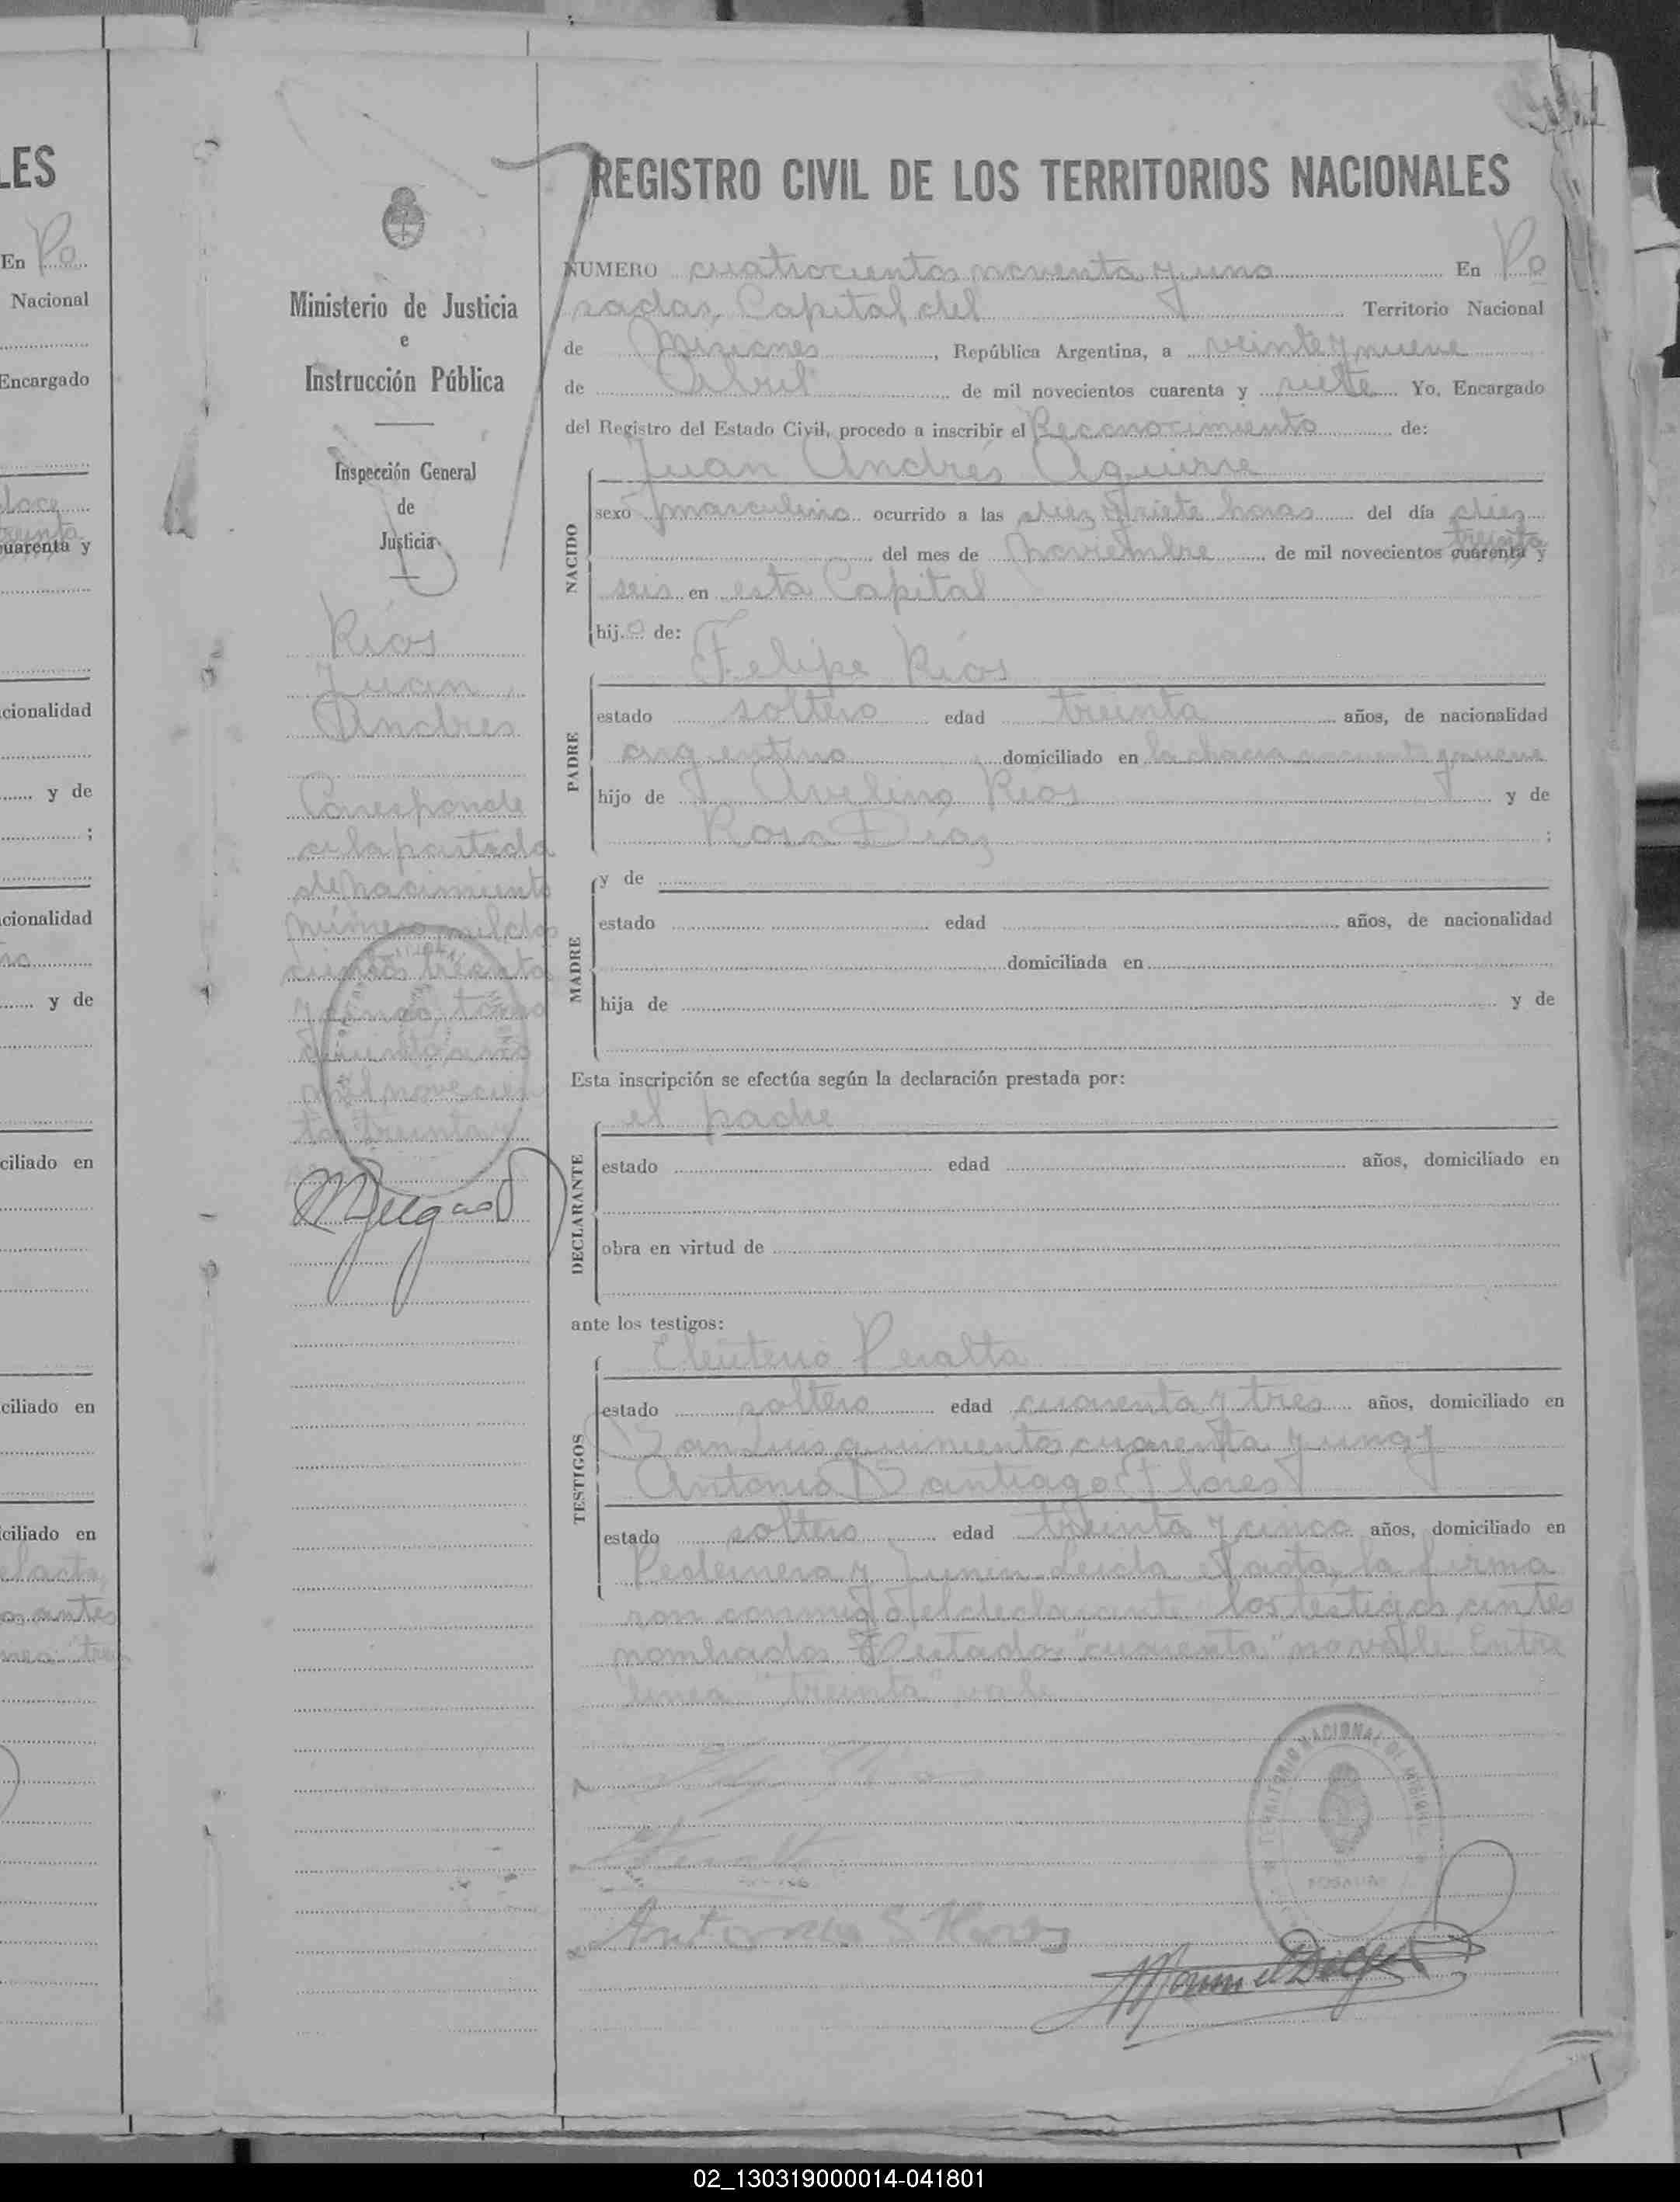 LES
En Po
Nacional
Encargado
treinta
cuarenta y
cionalidad
y de
;
cionalidad
y de
ciliado en
ciliado en
ciliado en
Ministerio de Justicia
e
Instrucción Pública
Inspección General
de
Justicia
Ríos
Juan
Andres
Corresponde
a la partida
de nacimiento
número mil dos
cientos treinta
y cinco, tomo
mil novecien
tos treinta y
MDelgado
REGISTRO CIVIL DE LOS TERRITORIOS NACIONALES
NUMERO cuatrocientos noventa y uno En Po
sadas, Capital del Territorio Nacional
de Misiones, República Argentina, a veinte y nueve
de Abril de mil novecientos cuarenta y siete Yo, Encargado
del Registro del Estado Civil, procedo a inscribir el Reconocimiento de:
Juan Andrés Aguirre
NACIDO
sexo masculino ocurrido a las diez y siete horas del día diez
treinta
del mes de Noviembre de mil novecientos cuarenta y
seis en esta Capital
hijo de:
Felipe Ríos
PADRE
estado soltero edad treinta años, de nacionalidad
argentino domiciliado en la chacra noventa y nueve
hijo de Avelino Ríos y de
Rosa Díaz ;
MADRE
y de
estado edad años, de nacionalidad
domiciliada en
hija de y de
Esta inscripción se efectúa según la declaración prestada por:
el padre
DECLARANTE
estado edad años, domiciliado en
obra en virtud de
ante los testigos:
Eleuterio Peralta
TESTIGOS
estado soltero edad cuarenta y tres años, domiciliado en
San Luis quinientos cuarenta y uno y
Antonio Santiago Flores
estado soltero edad treinta y cinco años, domiciliado en
Pedernera y Junin. Leida el acta, la firma
ron conmigo el declarante los testigos antes
nombrados Testado "cuarenta" no vale Entre
linea "treinta" vale
Peralta
Antonio S Flores
TERRITORIO NACIONAL DE MISIONES
POSADAS
Manuel Delgado
02_130319000014-041801